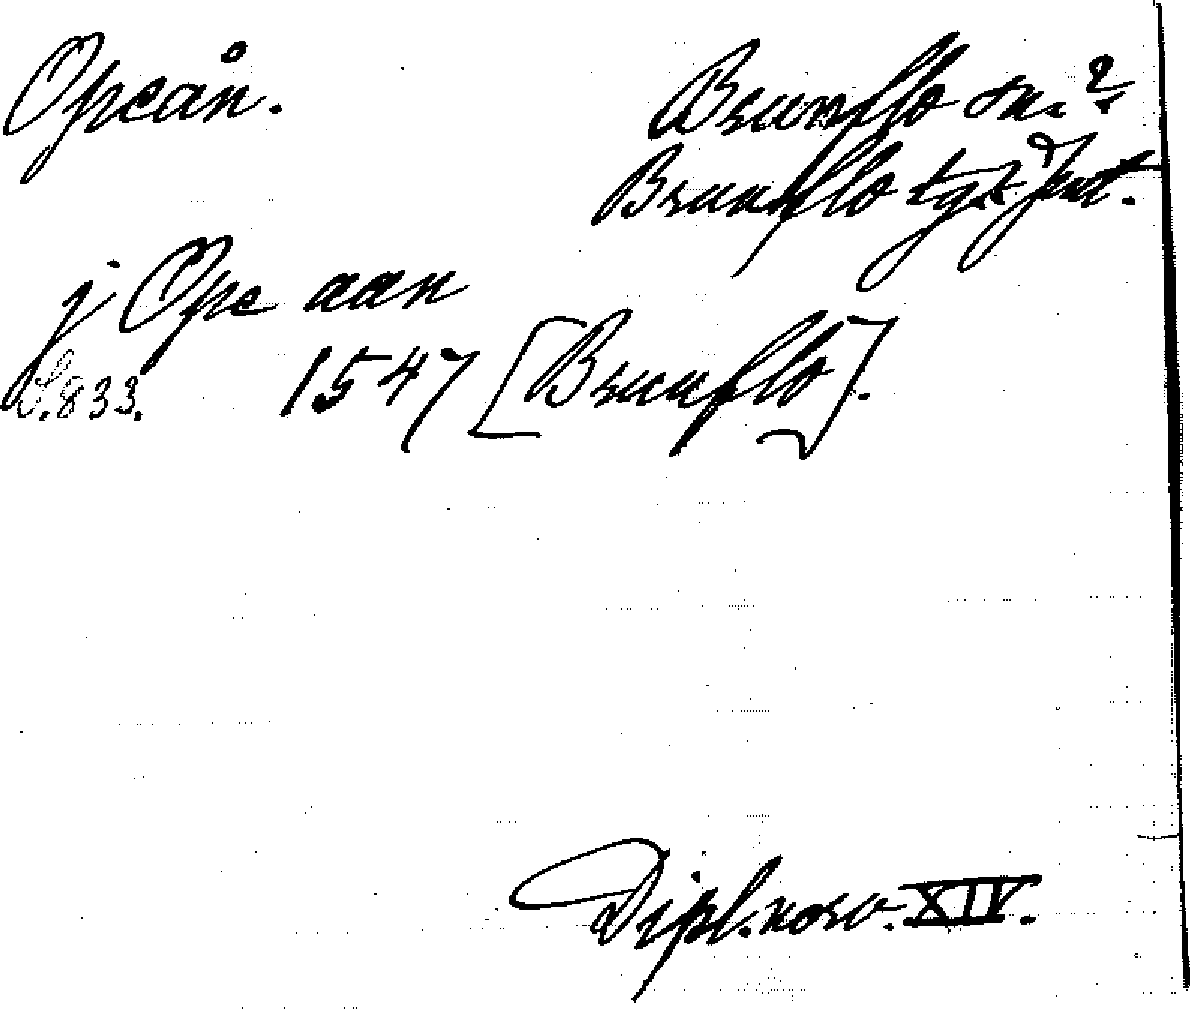 Opeån.
Brunflo sn.?
Brunflo tgl. Jmt.
j Ope aan
S. 833. 1547 [Brunflo].
Dipl. norv. XIV.